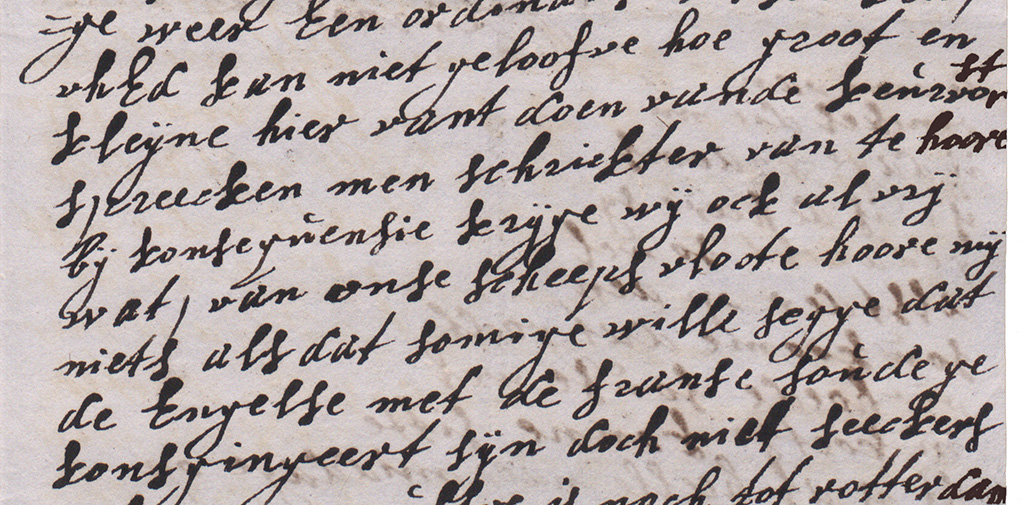 =ge weer Een ordina
vhEd kan niet geloofve hoe groot en
kleÿne hier vant doen vande keurvor
st
spreecken men schrickter van te hoore
bÿ konsequensie krÿge wÿ ock al vrÿ
wat, van onse scheeps vloote hoore wÿ
niets als dat somige wille segge dat
de Engelse met de franse soude ge
konsgingeert sÿn doch niet seeckers
is noch tot rotterdam